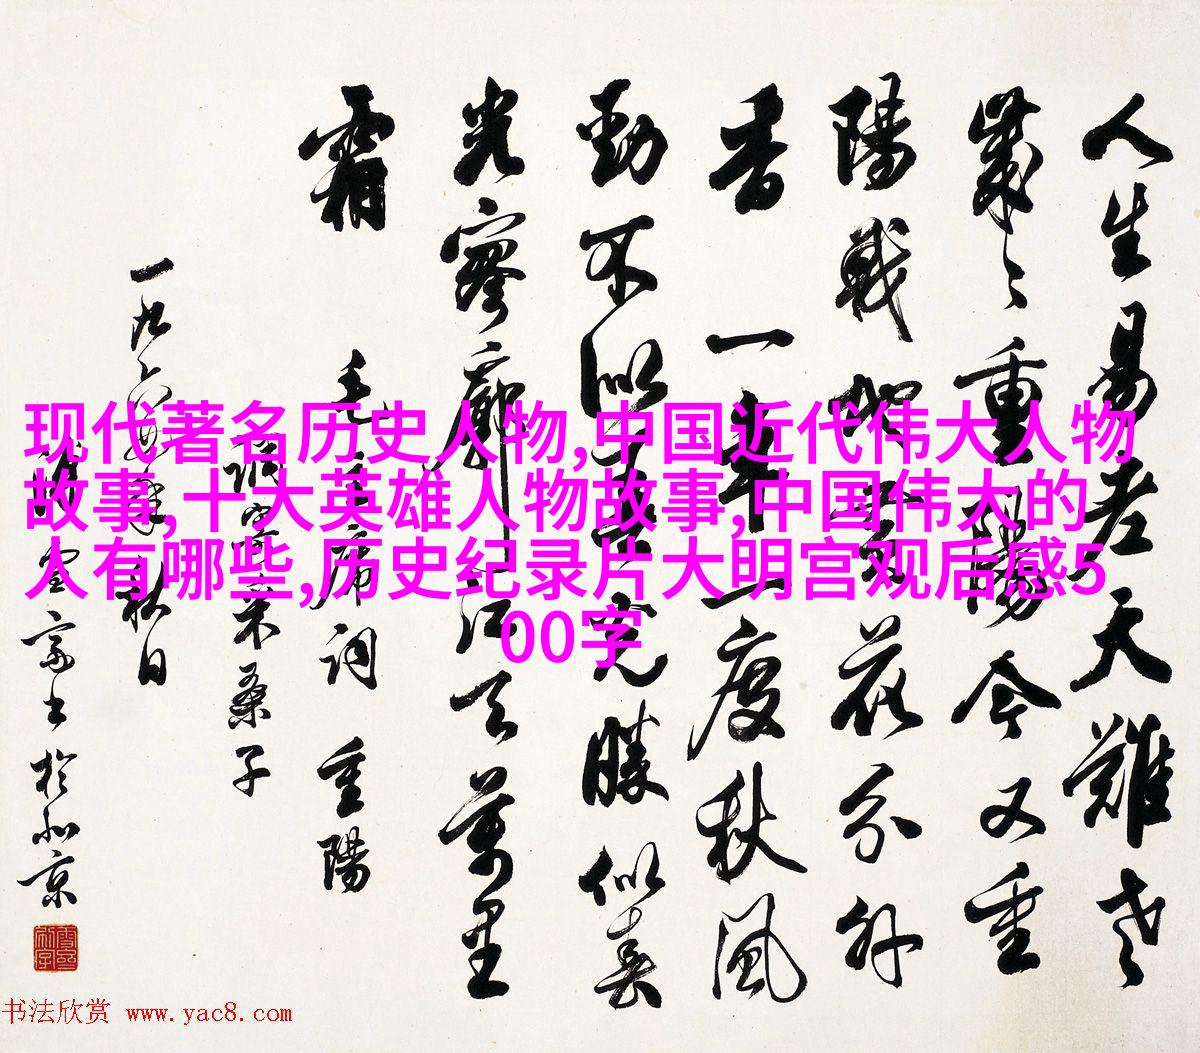 人生易老天難老
歲々重陽今又重
陽戰地黃花分外
香 一年一度秋風
勁不似春光勝似春
光寥廓江天萬里
霜 毛主席詞 重陽
調寄采桑子
一九六 年秋日
於北京
现代著名历史人物,中国近代伟大人物
故事,十大英雄人物故事,中国伟大的
人有哪些,历史纪录片大明宫观后感5
00字
书法欣赏 www.yac8.com